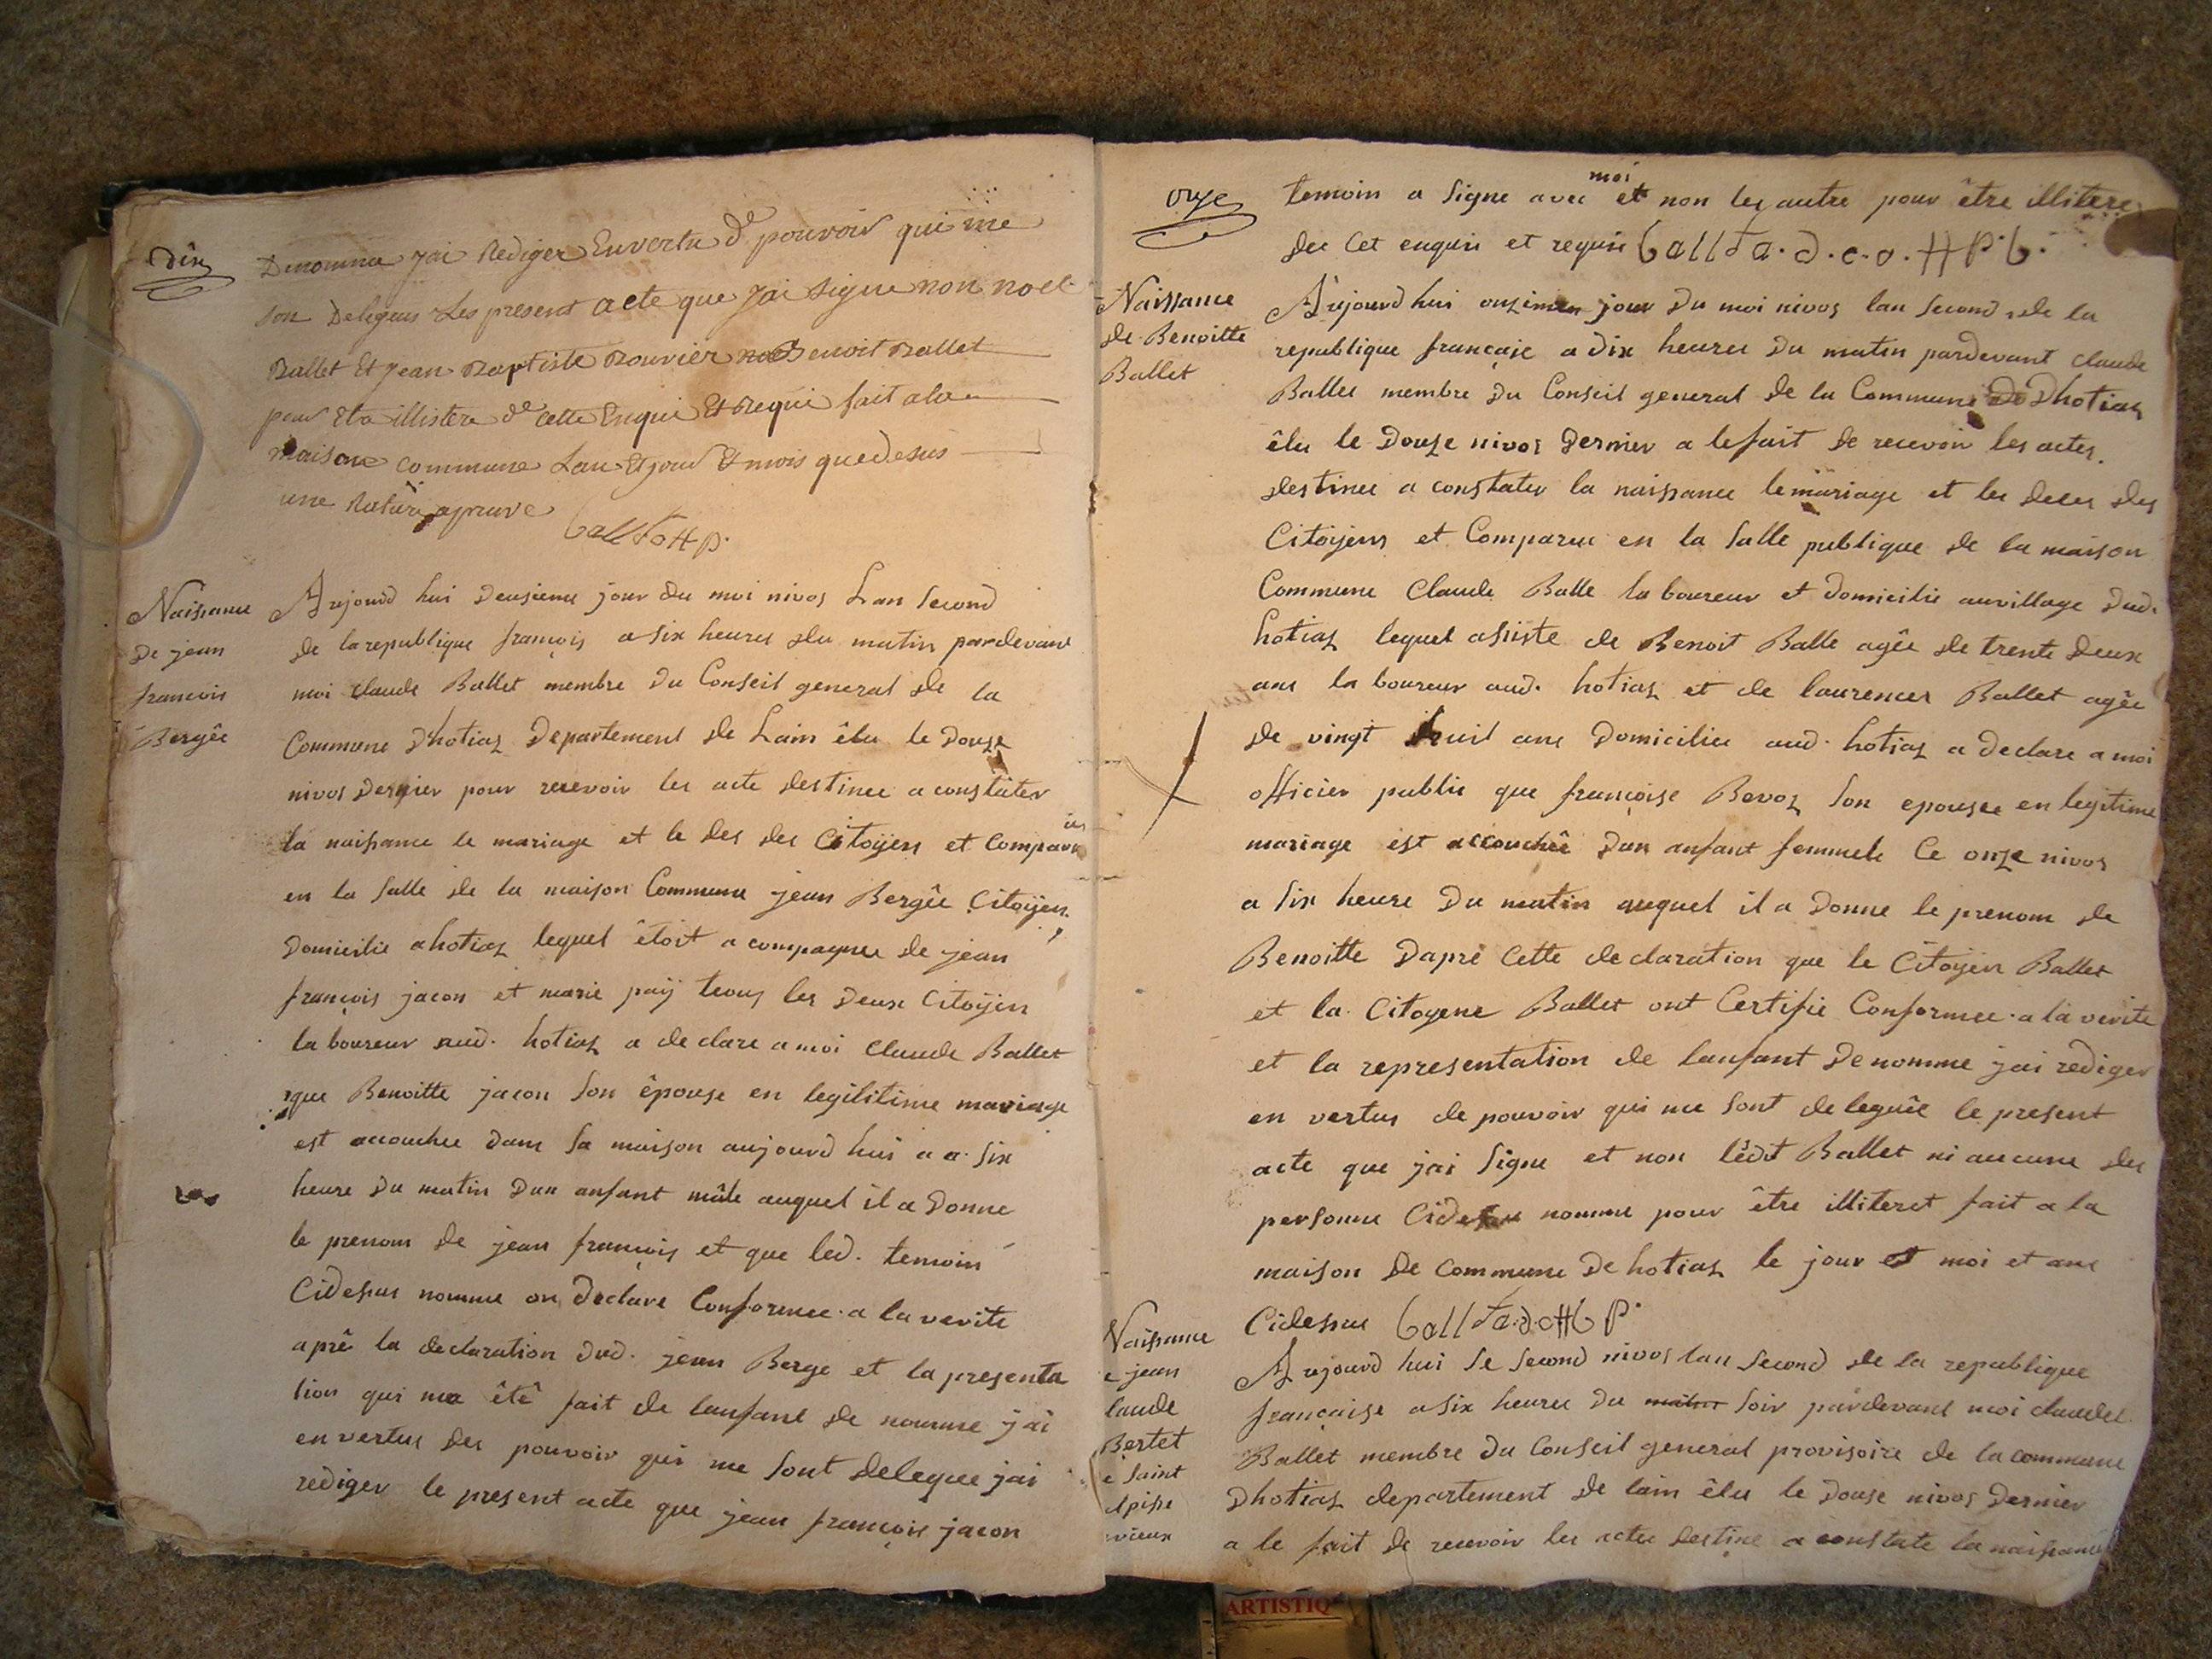 dix
Denomme jai Rediger Envertu de pouvoir qui me
son Delegeus Les present acte que Jai Signe non noel
Ballet Et Jean Baptiste Bouvier Benoit Ballet
pour Etre illistere de cette Enqui Et Requi fait a la
maison commune Lan Et jour Et mois quedesus
une Rature apruve
Naissance
De jean
francois
Bergêe
Aujourd hui Deusieme jour du moi nivos Lan Second
de la republique françois a six heures du matin pardevant
moi Claude Ballet membre Du Conseil general de la
Commune D'hotiaz Departement de Lain êlu le Douze
nivos Dernier pour recevoir les acte destinee a constater
la naissance le mariage et le des des Citoÿen et Comparu
en la Salle de la maison Commune jean Bergêe Citoÿen
Domicilie a hotiaz lequel êtoit a compagnee de jean
françois jacon et marie paÿ tous les Deux Citoÿen
laboureur aud. hotiaz a declare a moi Claude Ballet
que Benoitte jacon Son êpouse en legitime mariage
est accouchee dans Sa maison aujourd hui a a Six
heure Du matin Dun anfant mâle auquel il a Donne
le prenom de jean françois et que led. temoin
Cidessus nomme on Declare Conformee a la verite
aprê la declaration Dud. jean Berge et la presenta
tion qui ma êtê fait de lanfant de nomme jai
en vertus des pouvoir qui me Sont deleguee jai
rediger le present acte que jean françois jacon
onze
temoin a Signe avec moi et non les autre pour être illitere
dec Cet enquis et requis
Naissance
de Benoitte
Ballet
Aujourd hui onzimen jour Du moi nivos lan Second de la
republique française a Dix heures Du matin pardevant Claude
Ballet membre Du Conseil general de la Commune Dhotiaz
êlu le Douze nivos Dernier a lefait de recevoir les actes
destinee a constater la naissance lemariage et les deces des
Citoÿens et Comparue en la Salle publique de la maison
Commune Claude Balle laboureur et Domicilie auvillage Dud.
hotiaz lequel assiste de Benoit Balle agêe de trente Deux
ans laboureur aud. hotiaz et de laurences Ballet agêe
de vingt huit ans Domiciliee aud. hotiaz a Declare a moi
officier public que françoise Bevoz Son epousee en legitime
mariage est accouchêe Dun anfant femmele Ce onze nivos
a Six heure Du matin auquel il a Donne le prenom de
Benoitte Dapré Cette declaration que le Citoÿen Ballet
et la Citoyene Ballet ont Certifie Conformee a la verite
et la representation de lanfant Denomme jai rediger
en vertus de pouvoir qui me Sont deleguêe le present
acte que jai Signe et non lédit Ballet ni aucune des
personne Cidessus nomme pour être illiteret fait a la
maison de Commune De hotiaz le jour et moi et ans
Cidessus
Naissance
e jean
laude
Bertet
e Saint
Aujourd hui le Second nivos lan Second de la republique
française a six heures Du Soir pardevant moi claudes
Ballet membre Du Conseil general provisoire de la commune
Dhotiaz departement de lain êlu le Douse nivos Dernier
a le fait de recevoir les actes destine a constate la naissance
ARTISTIQ